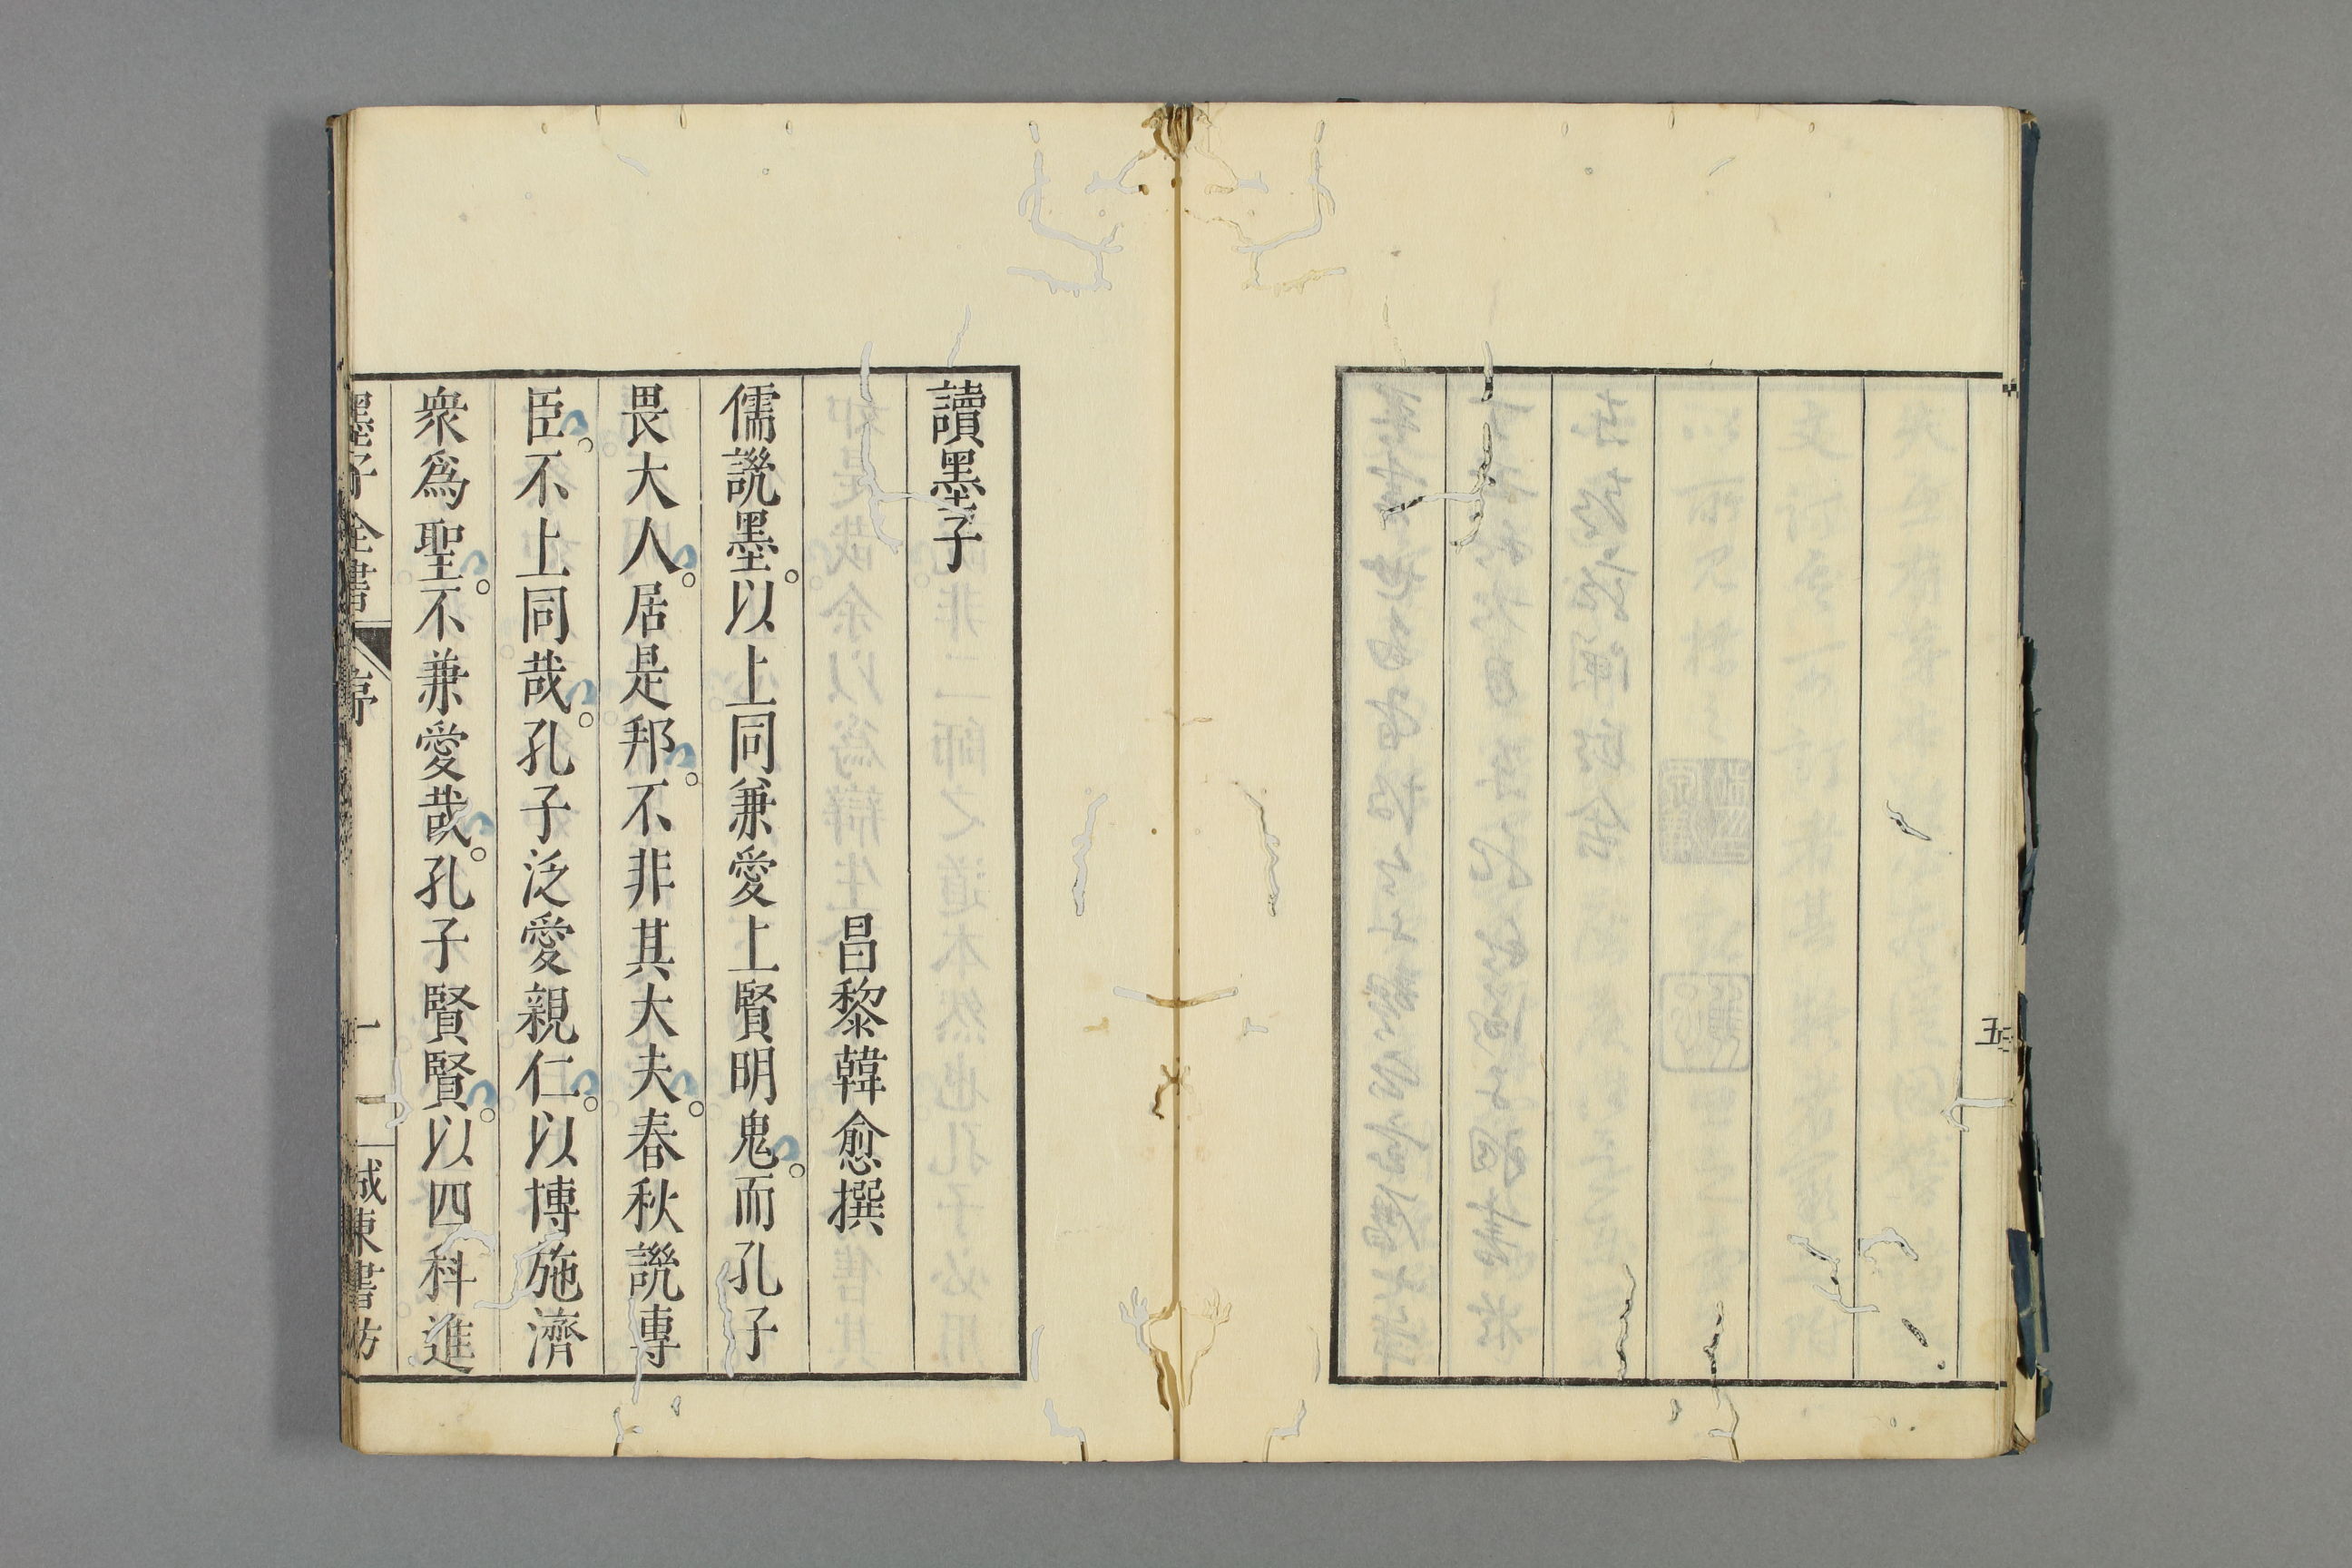 五
讀墨子
昌黎韓愈撰
儒譏墨。以上同兼愛上賢明鬼。而孔子
畏大人。居是邦。不非其大夫。春秋譏專
臣。不上同哉。孔子泛愛親仁。以博施濟
衆爲聖。不兼愛哉。孔子賢賢。以四科進
墨子全書 序 一 城東書坊